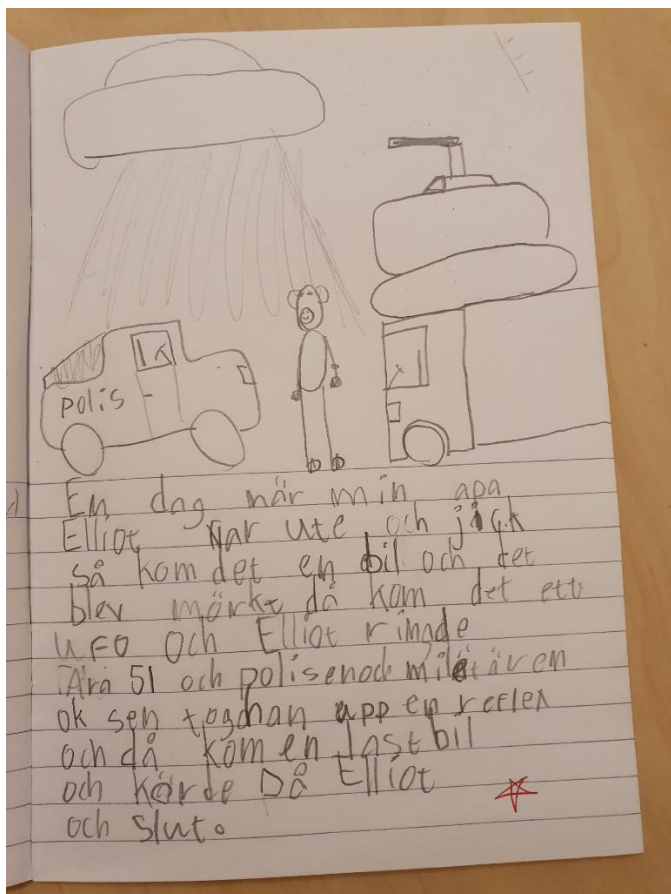 polis
En dag när min apa
Elliot var ute och jick
så kom det en bil och det
blev mörkt då kom det ett
UFO och Elliot ringde
Aria 51 och polisen och militären
ok sen tog han upp en reflex
och då kom en lastbil
och körde På Elliot
och slut.